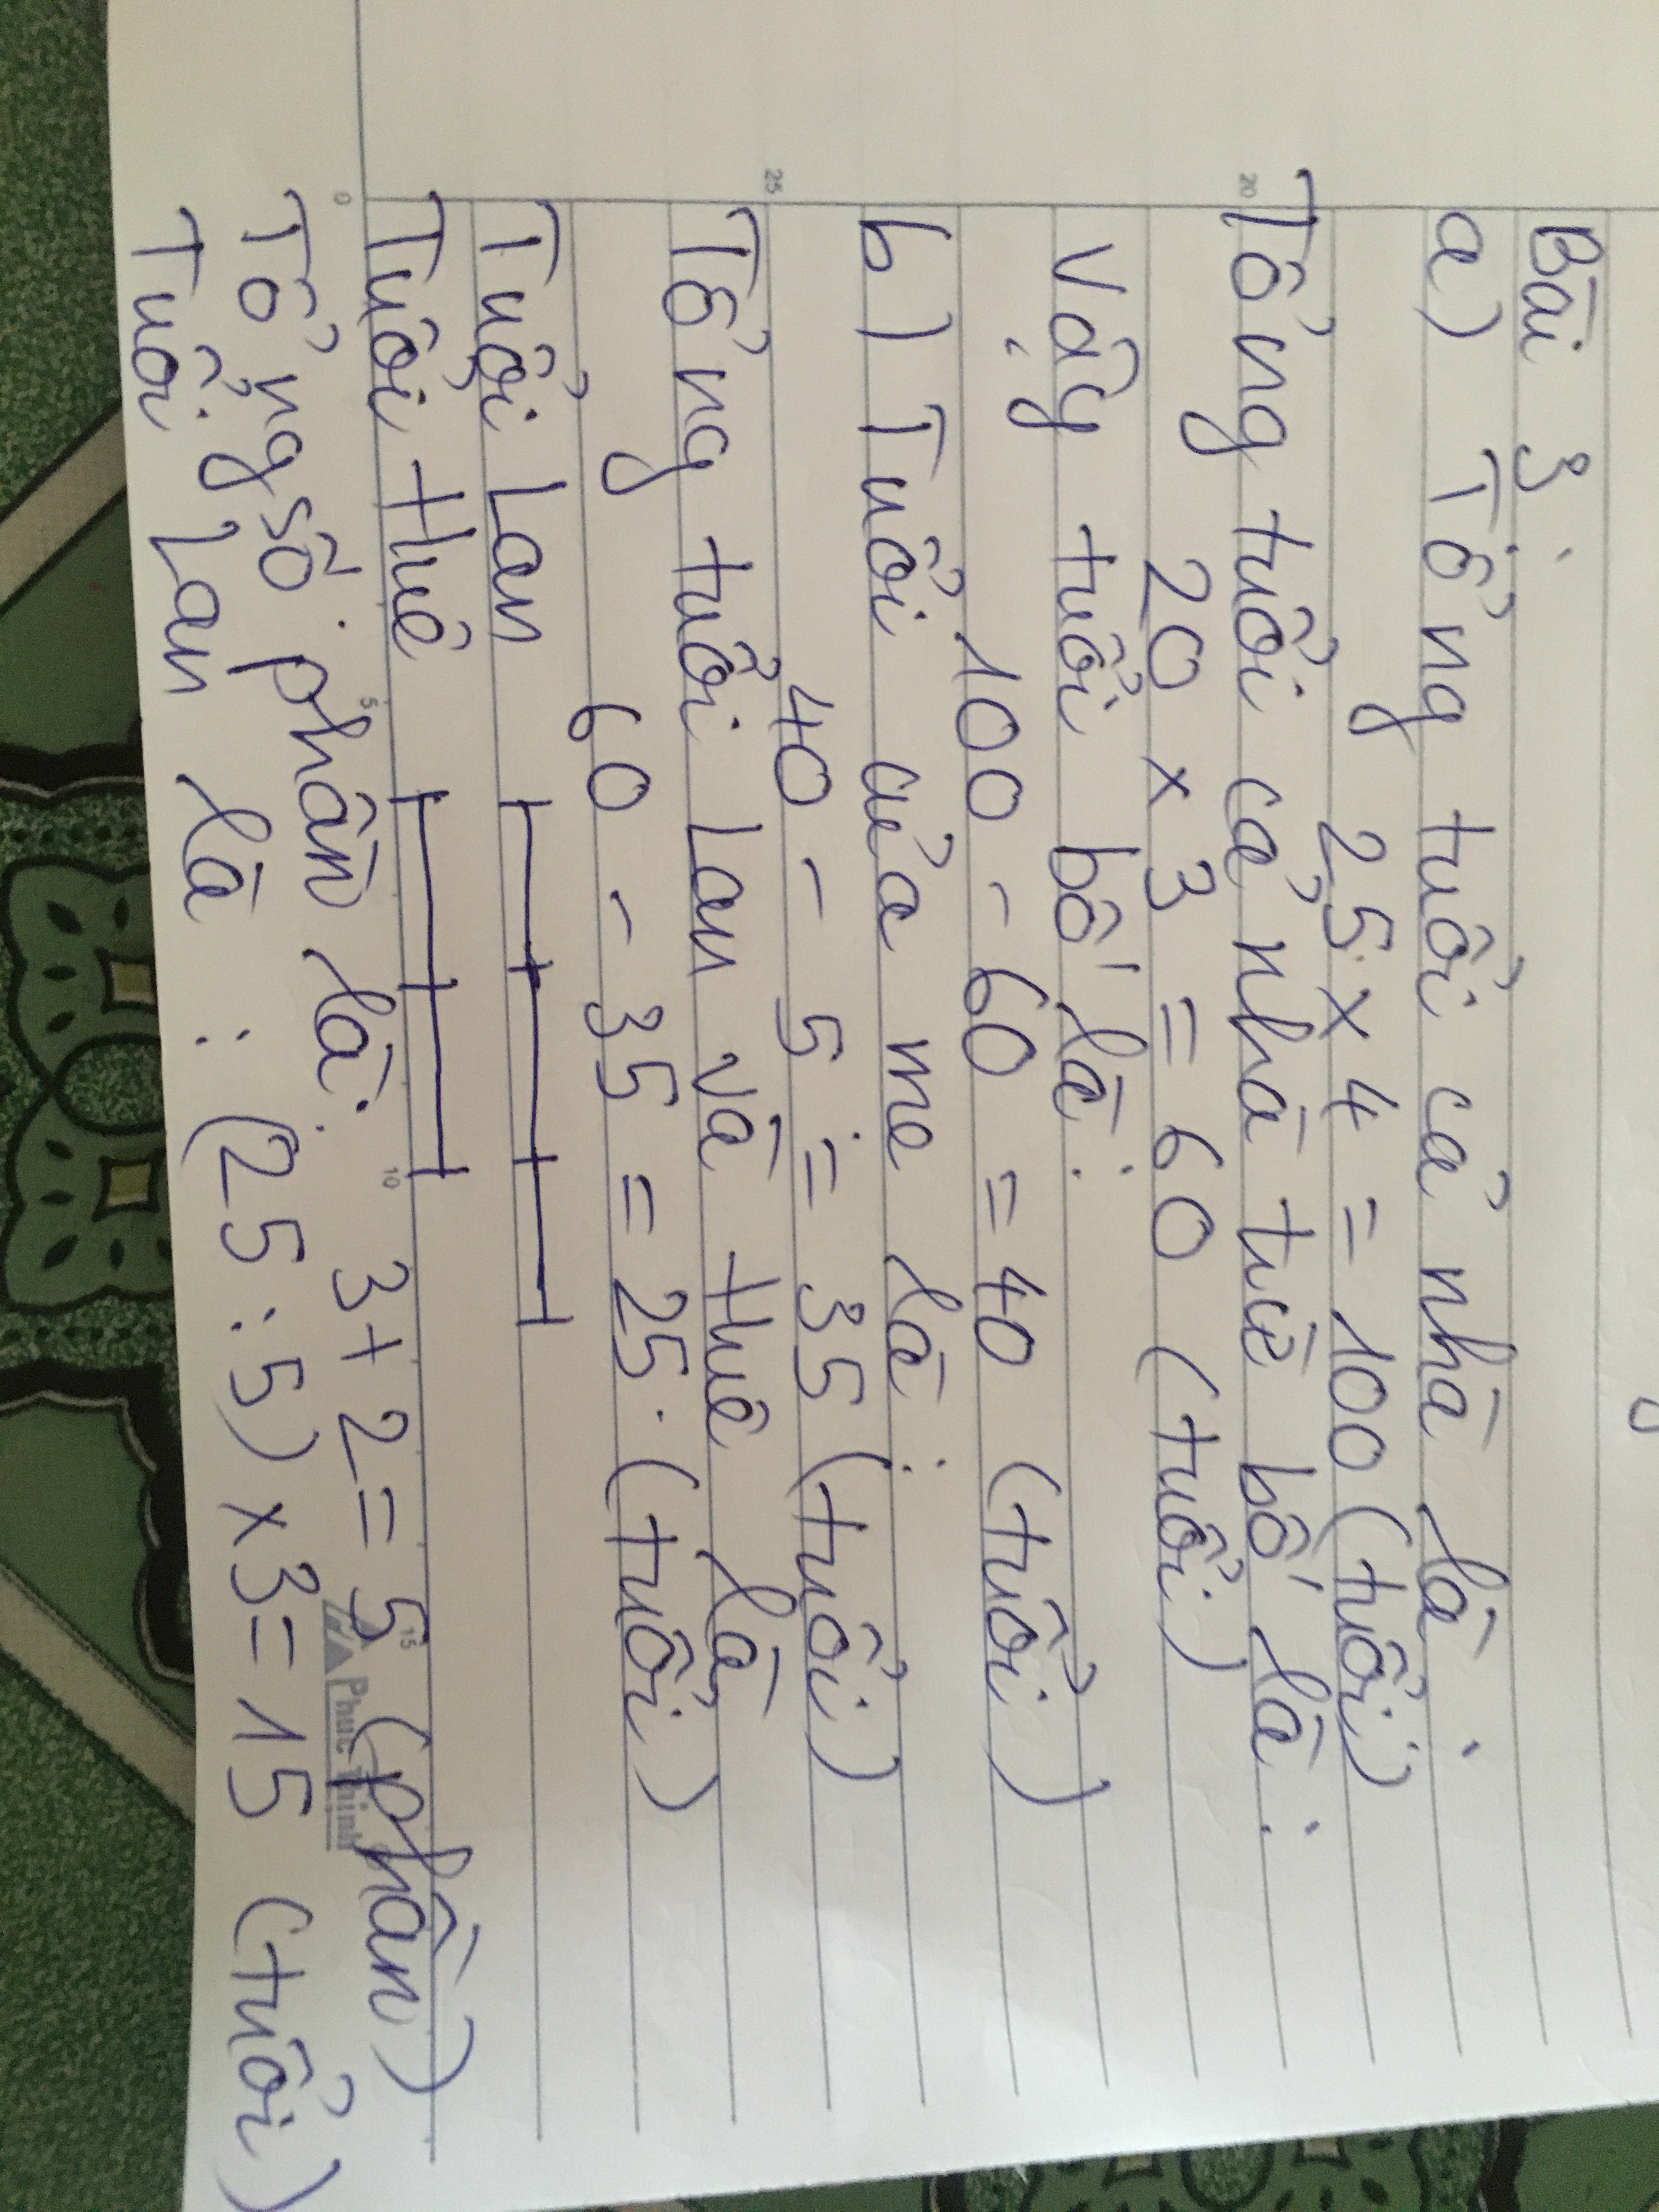 Bài 3:
a) Tổng tuổi cả nhà là:
25 x 4 = 100 (tuổi)
Tổng tuổi cả nhà trừ bố là:
20 x 3 = 60 (tuổi)
Vậy tuổi bố là:
100 - 60 = 40 (tuổi)
b) Tuổi của mẹ là:
40 - 5 = 35 (tuổi)
Tổng tuổi Lan và Huê là
60 - 35 = 25 (tuổi)
Tuổi Lan
Tuổi Huê
Tổng số phần là: 3 + 2 = 5 (phần)
Tuổi Lan là: (25 : 5) x 3 = 15 (tuổi)
20
25
0
5
10
15
Phúc Thịnh